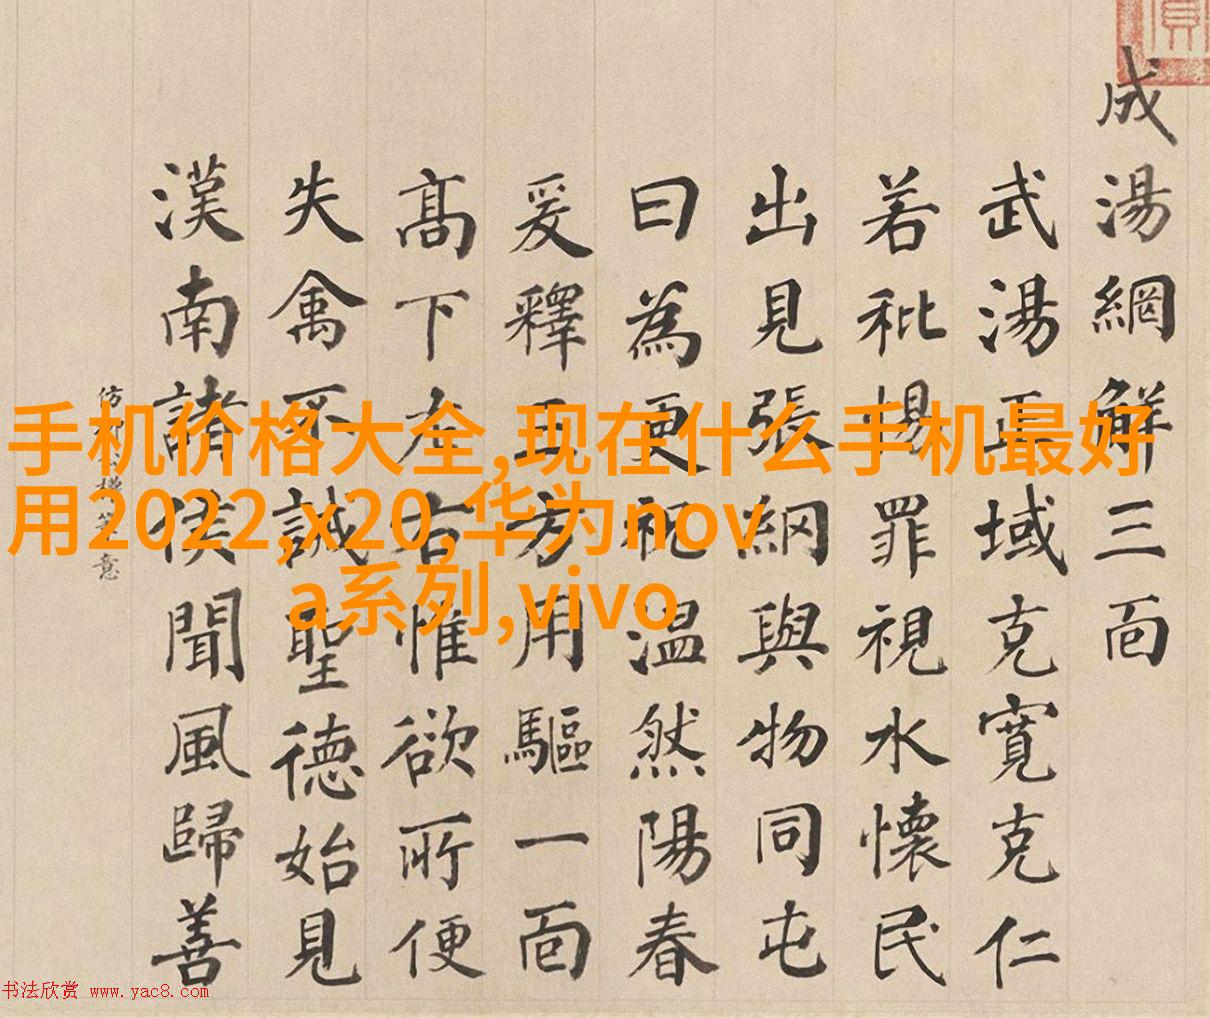 成湯網解三面
武湯正域克寬克仁
若秕惕罪視水懷民
出見張網與物同屯
曰為更祝温然陽春
爰釋三方用驅一面
高下左右惟欲所便
失禽不誡聖德始見
漢南諸侯聞風歸善
仿意
手机价格大全,现在什么手机最好
用2022,x20,华为nov
a系列,vivo
书法欣赏 www.yac8.com